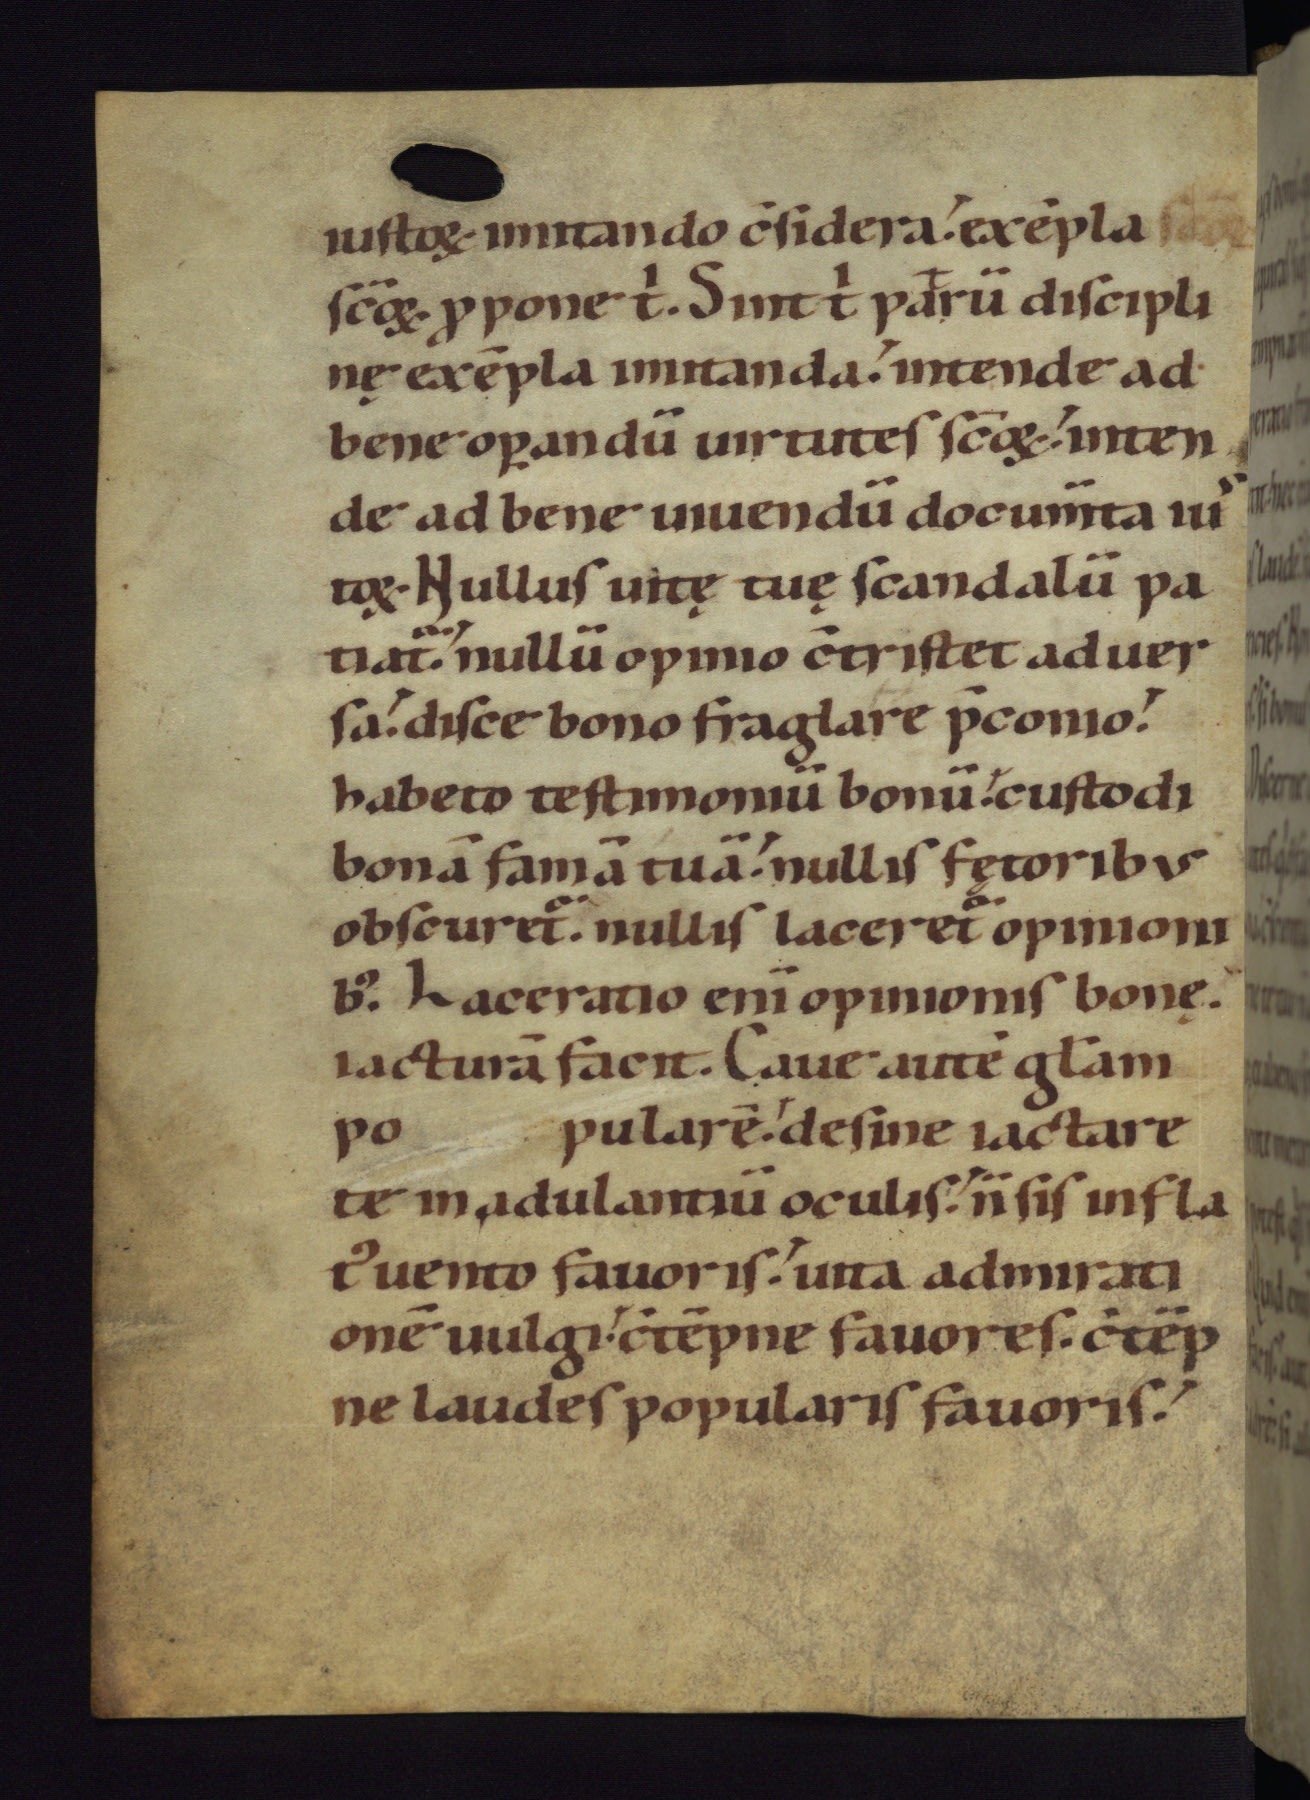 iustoꝝ imitando c̄sidera. exēpla
sc̄oꝝ ꝓpone t̄ı. Sint t̄ı patrū discipli
nę exēpla imitanda. intende ad
bene oꝑandū uirtutes sc̄oꝝ. inten
de ad bene uiuendū documīta iu
toꝝ. Nullus uitę tuę scandalū pa
tiat᷑. nullū opinio c̄tristet aduer
sa. disce bono fraglare p̄conio.
habeto testimoniū bonū. custodi
bonā famā tuā. nullis fętoribus
obscuret᷑. nullis laceret᷑ opinioni
bꝰ. Laceratio enī opinionis bonę.
iacturā facit. Caue autē gl̄am
po pularē. desine iactare
te in adulantiū oculis. n̄ sis infla
tꝰ uento fauoris. uita admirati
onē uulgi. c̄tēpne fauores. c̄tēp
ne laudes popularis fauoris.